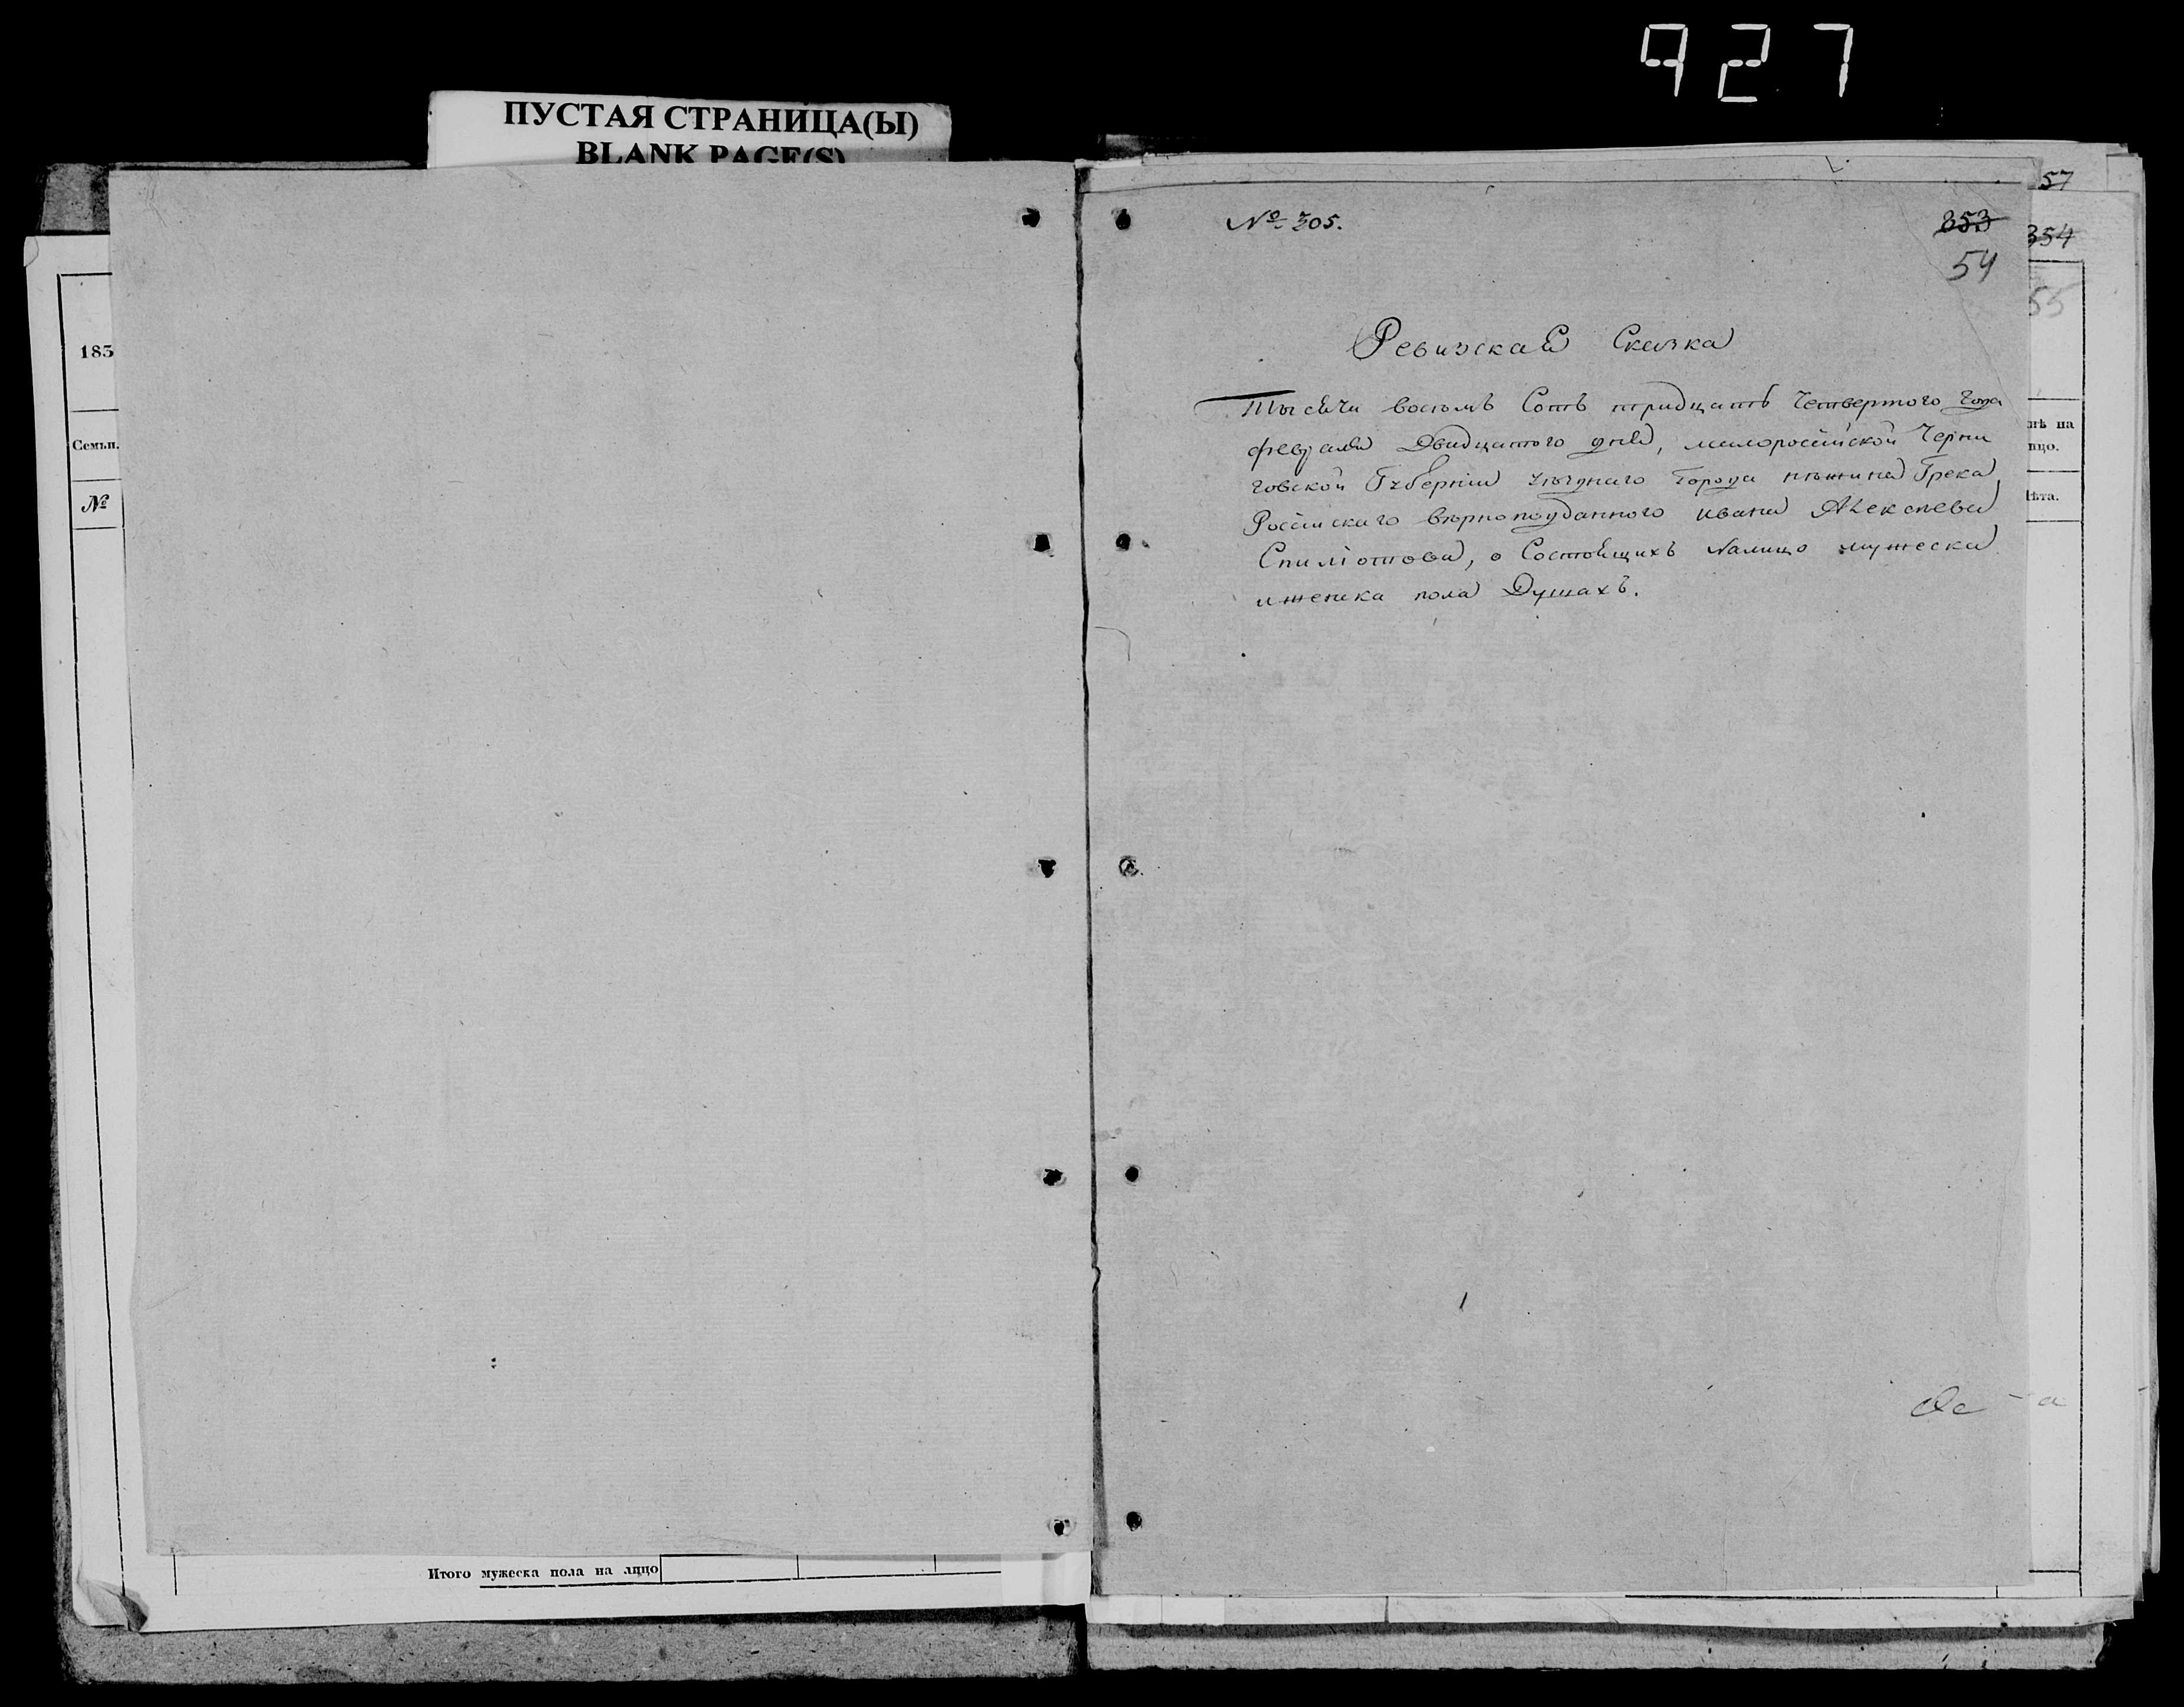 927
ПУСТАЯ СТРАНИЦА(Ы)
BLANK PAGE(S)
183
Семьи.
№
Итого мужеска пола на лицо
57
№ 305.
353
354
54
55
Ревизская Сказка
Тысячи восемъ Сотъ тридцать Четвертого года
февраля Двадцатого дня, малороссійской Черни
говской Губерніи уѣзднаго города нѣжина Грека
Россійскаго вѣрноподданного ивана Алексѣева
Спиліотова, о Состоящихъ Налицо мужеска
иженска пола Душахъ.
нѣ на
ицо.
ѣта.